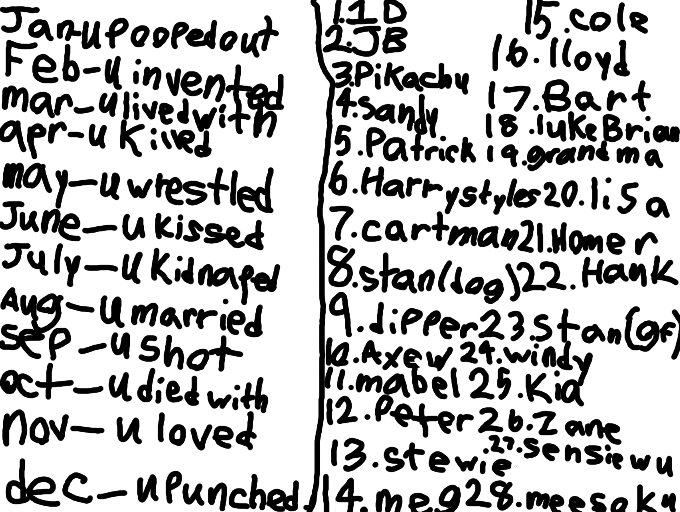 Jan-u pooped out
Feb-u invented
mar-u lived with
apr-u Killed
may-u wrestled
June-u kissed
July-u Kidnaped
Aug-u married
sep-u shot
oct-u died with
nov-u loved
dec-u Punched
1.1D
2.JB
3.Pikachu
4.sandy
5.Patrick
6.Harry styles
7.cartman
8.stan(dog)
9.dipper
10.Axew
11.mabel
12.Peter
13.stewie
14.meg
15.cole
16.lloyd
17.Bart
18.luke Brian
19.grandma
20.lisa
21.Homer
22.Hank
23.Stan(gf)
24.windy
25.Kia
26.Zane
27.sensie wu
28.meesaku